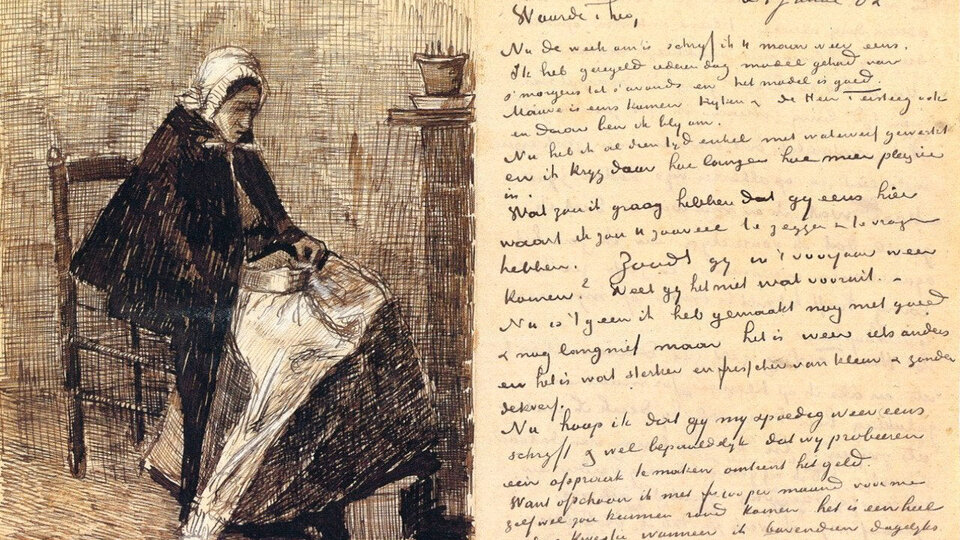 Waarde Theo,
Nu de week om is schrijf ik u maar weer eens.
Ik heb geregeld iederen dag model gehad van
s'morgens tot s'avonds en het model is goed.
Mauve is eens komen kijken & de Heer Tersteeg ook
en daar ben ik bly om.
Nu heb ik al dien tyd enkel met waterverf gewerkt
en ik kryg daar hoe langer hoe meer plezier
in.
Wat zou ik graag hebben dat gy eens hier
waart ik zou u zooveel te zeggen & te vragen
hebben. Zoudt gy in 't voorjaar weer
komen? Weet gy het niet wat vooruit.
Nu is 't geen ik heb gemaakt nog niet goed
& nog lang niet maar het is weer iets anders
en het is wat sterker en frisscher van kleur & zonder
dekverf.
Nu hoop ik dat gy my spoedig weer eens
schryft & wel bepaaldelyk dat wy probeeren
een afspraak te maken omtrent het geld.
Want ofschoon ik met per maand voor me
zelf wel zou kunnen rond komen het is een heel
wanneer ik bovendien dagelyks